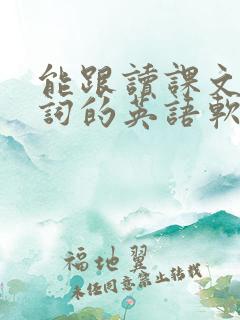 能跟讀課文
詞的英語軟
福地翼
未任同意禁止转载